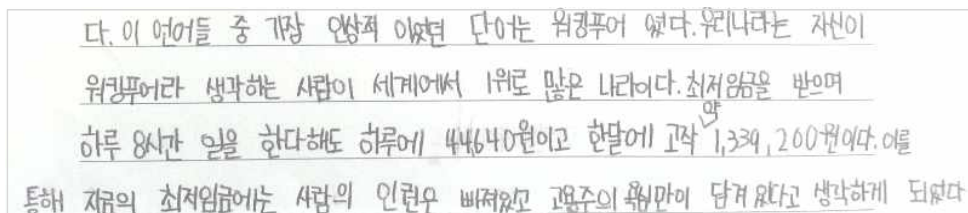 다. 이 언어들 중 가장 인상적 이었던 단어는 워킹푸어 였다. 우리나라는 자신이
워킹푸어라 생각하는 사람이 세계에서 1위로 많은 나라이다. 최저임금을 받으며
하루 8시간 일을 한다해도 하루에 44,640원이고 한달에 고작 약 1,339,200원이다. 이를
통해 지금의 최저임금에는 사람의 인권은 빠져있고 고용주의 욕심만이 담겨 있다고 생각하게 되었다